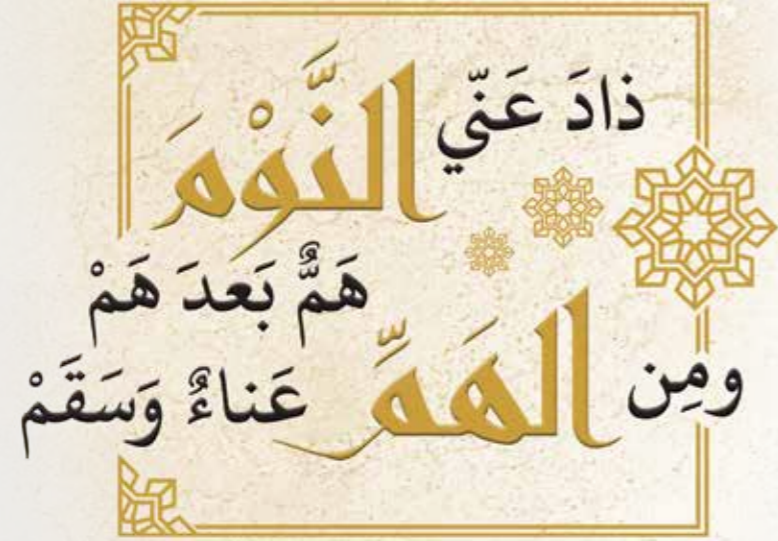 ذادَ عَنّي النَّوْمَ
هَمٌّ بَعدَ هَمْ
ومِن الهَمِّ عَناءٌ وَسَقَمْ